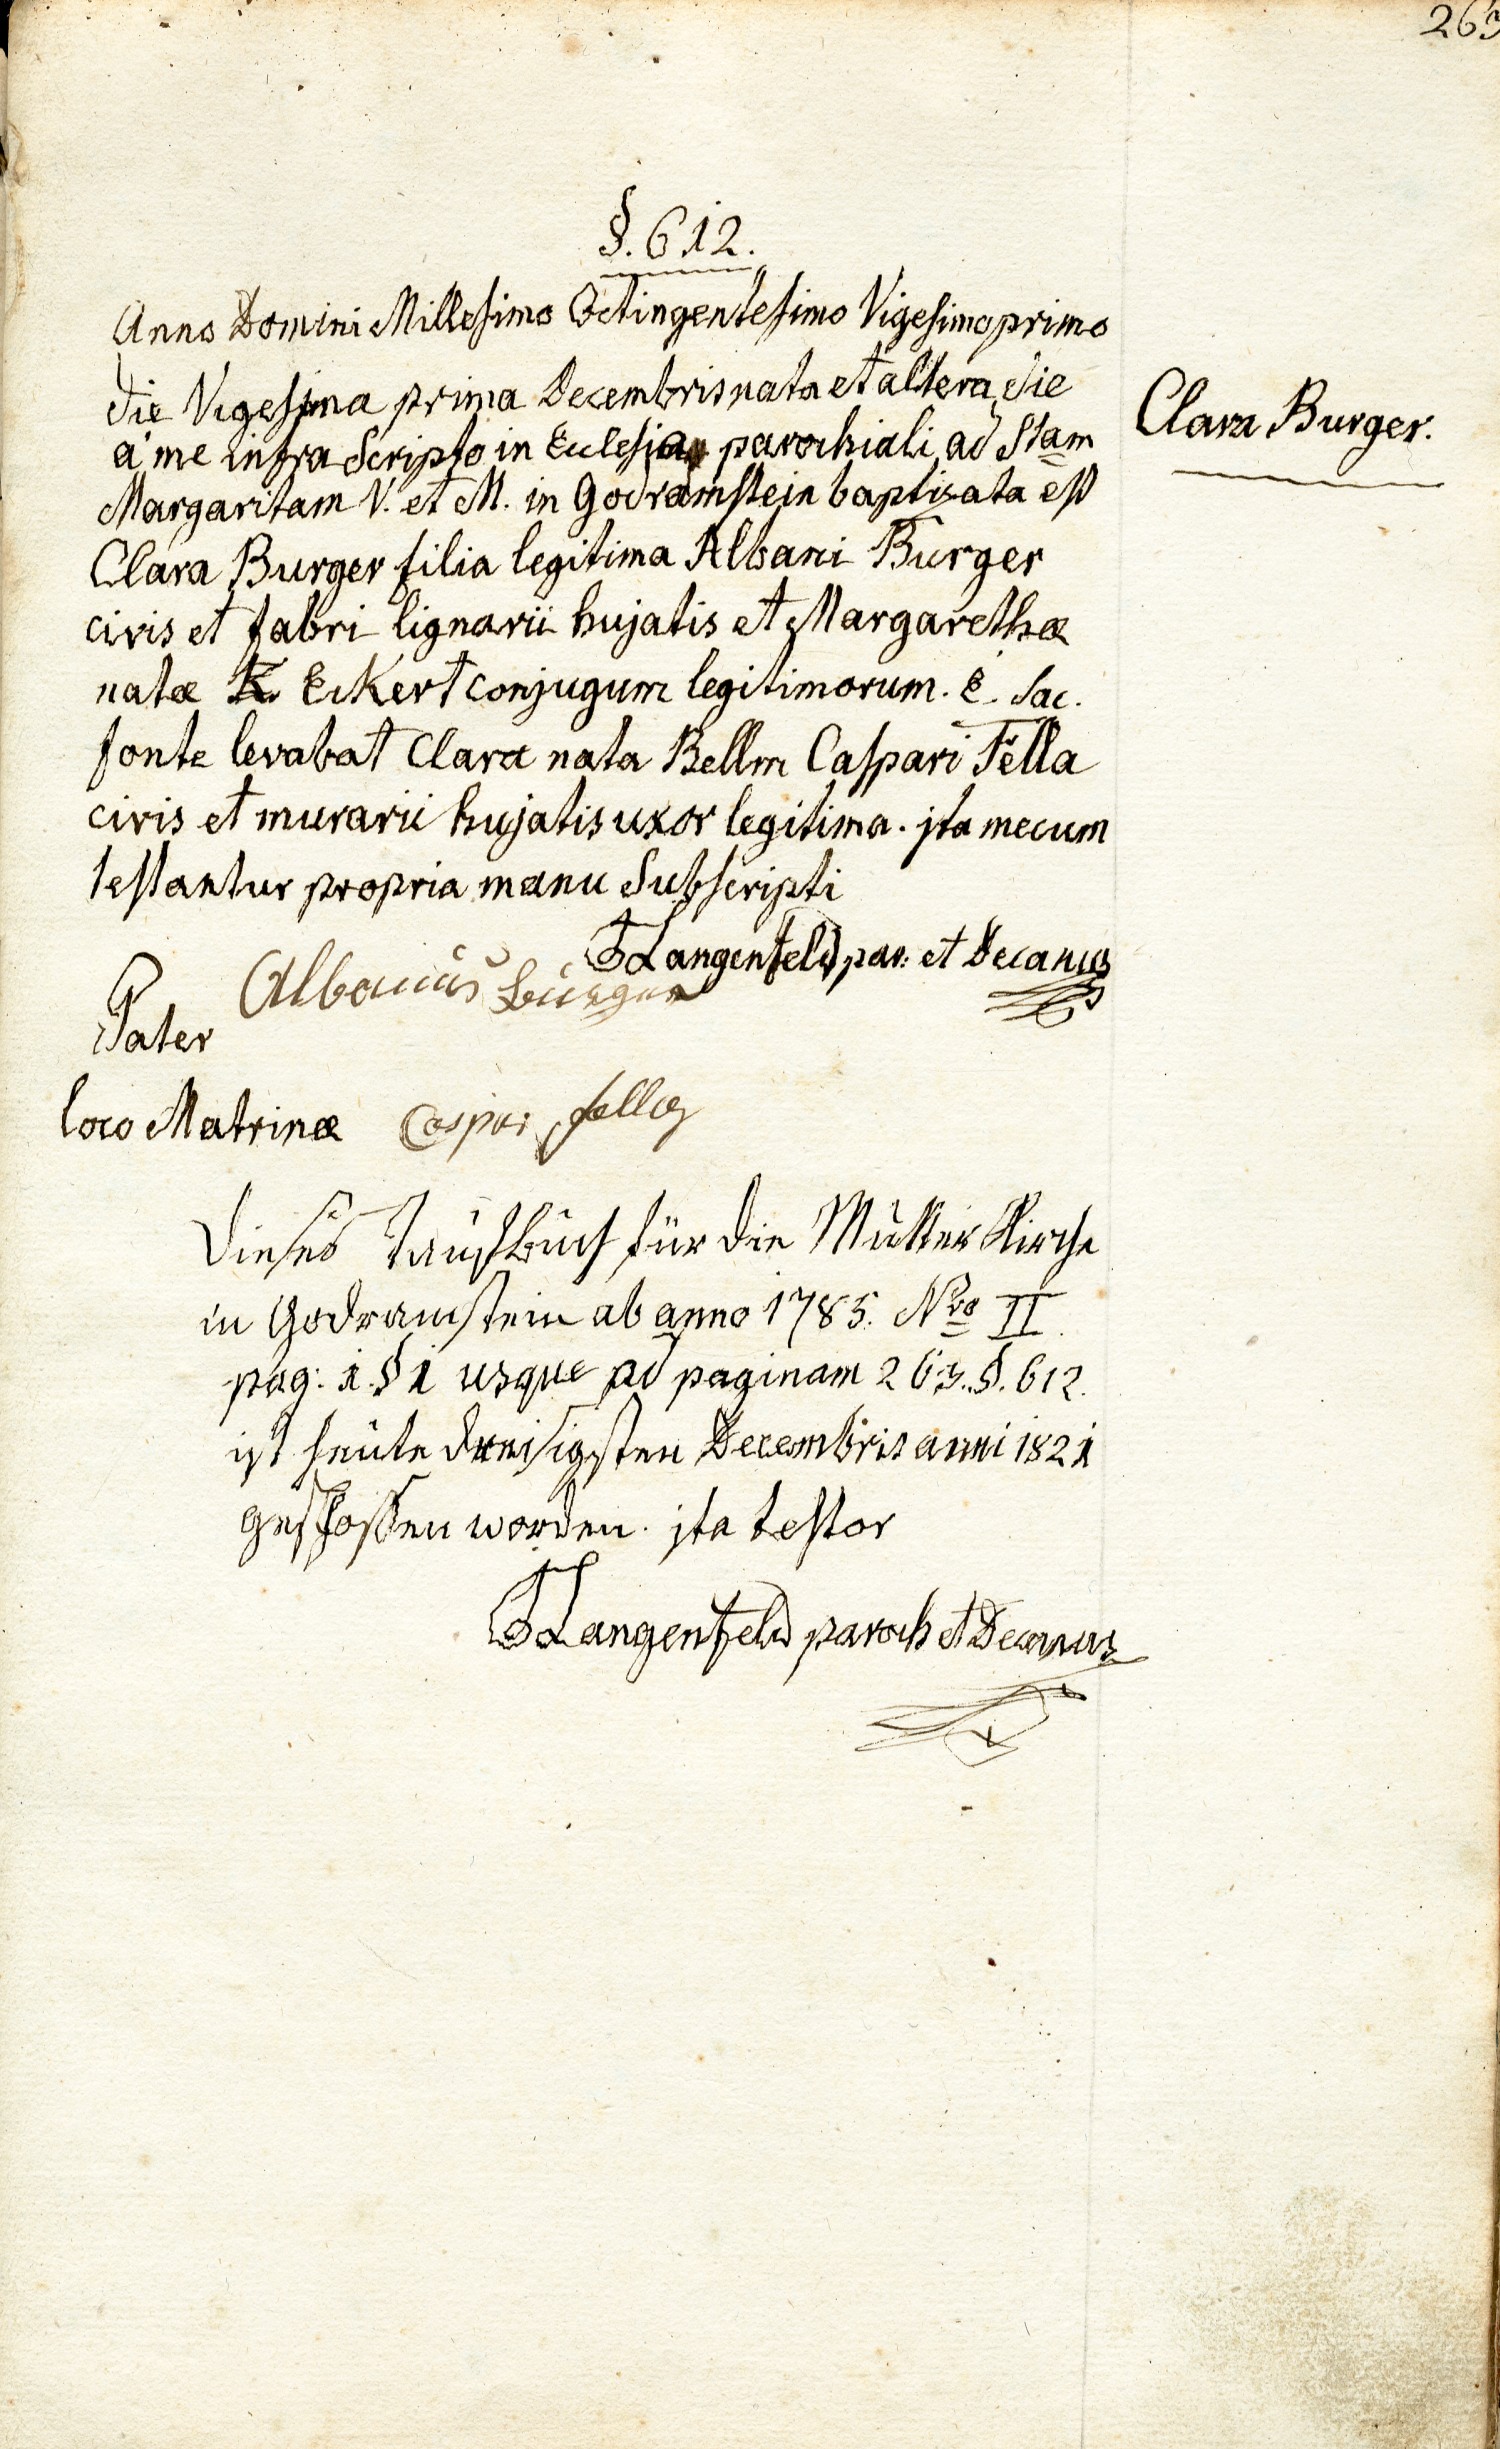 263
§. 612.
Anno Domini Millesimo Octingentesimo Vigesimo primo
die Vigesima prima Decembris nata et altera die
a me infra Scripto in Ecclesia parochiali ad Stam
Margaritam V. et M. in Godramstein baptisata est
Clara Burger filia legitima Albani Burger
civis et fabri lignarii hujatis et Margarethæ
natæ Eckert conjugum legitimorum. E. Sac.
fonte levabat Clara nata Bellm Caspari Fella
civis et murarii hujatis uxor legitima. jta mecum
testantur propria manu Subscripti
Clara Burger.
Langenfeld par: et Decanus
Pater Albanus burger
loco Matrinæ Caspar fella
Dieses Taufbuch für die Mutter Kirche
in Godramstein ab anno 1785. Nro II.
pag: 1. § 1 usque ad paginam 263. §. 612.
ist heute dreisigsten Decembris anni 1821
geschlossen worden. jta testor
Langenfeld paroch et Decanus